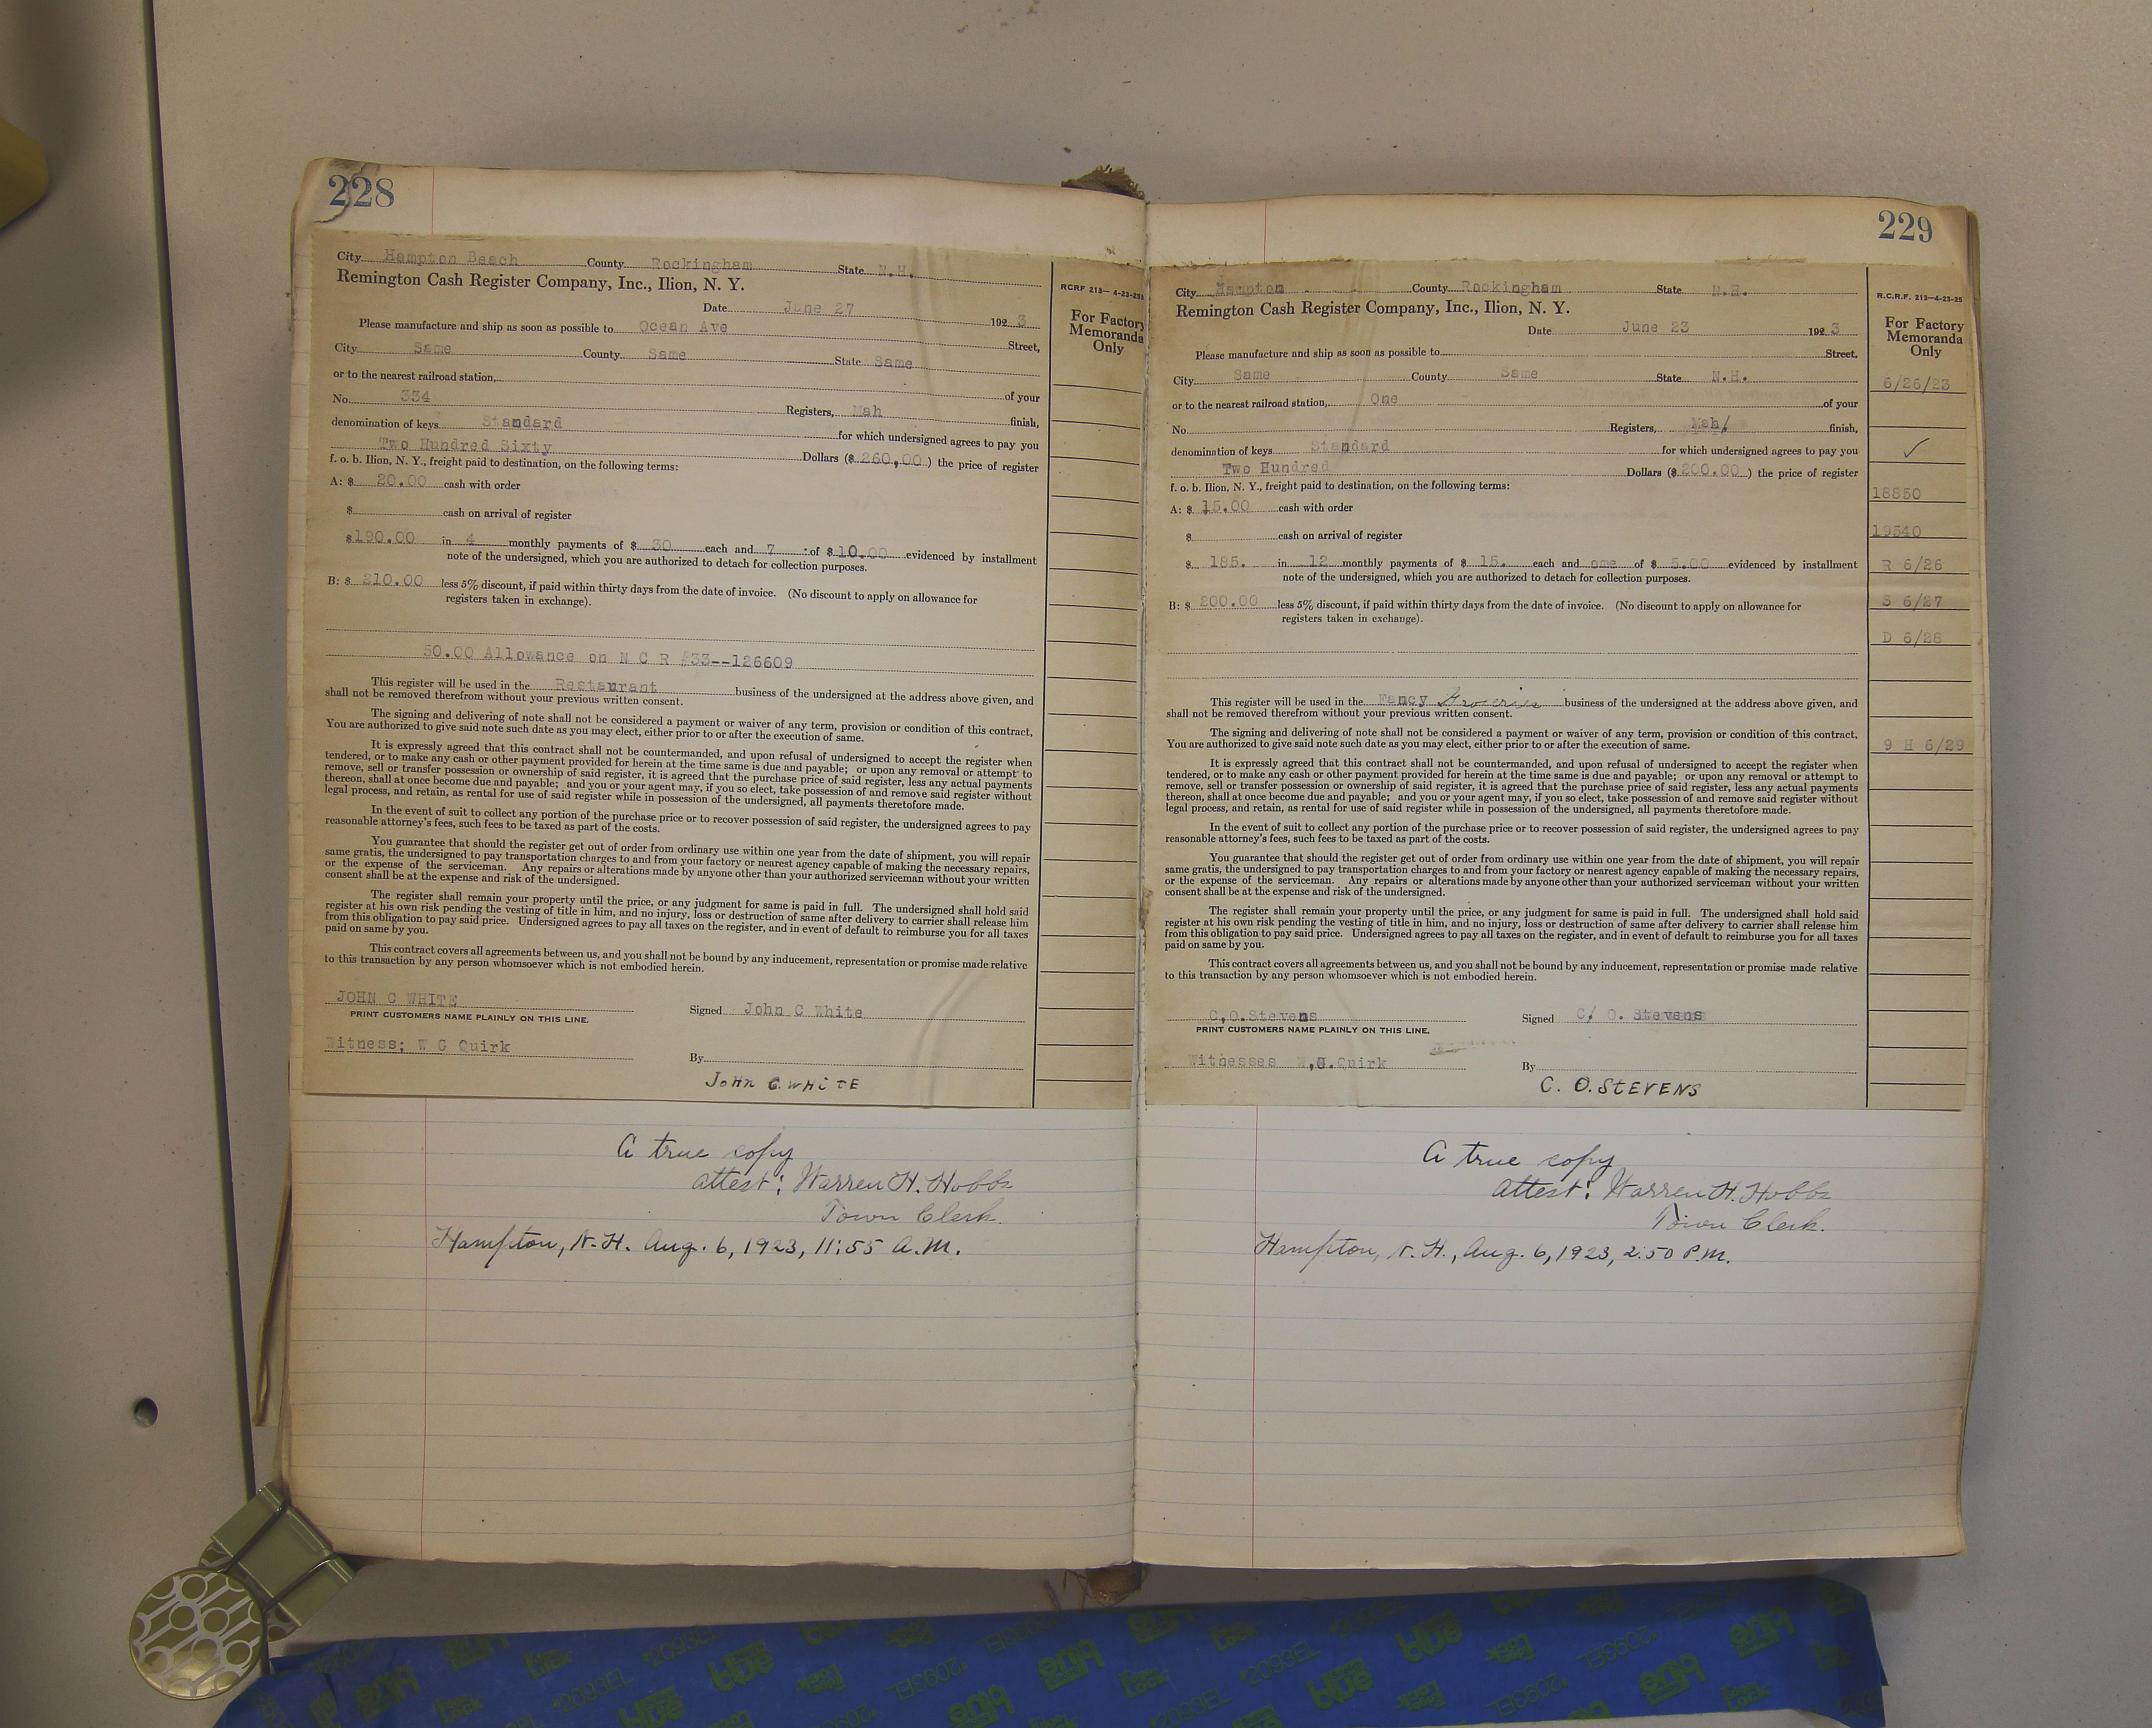 228
City Hampton Beach County Rockingham State N.H.
Remington Cash Register Company, Inc., Ilion, N. Y.
Date June 27 1923
Please manufacture and ship as soon as possible to Ocean Ave Street,
City Same County Same State Same
or to the nearest railroad station, of your
No. 334 Registers, Mah finish,
denomination of keys Standard for which undersigned agrees to pay you
Two Hundred Sixty Dollars ($ 260,00 ) the price of register
f. o. b. Ilion, N. Y., freight paid to destination, on the following terms:
A: $ 20.00 cash with order
$ cash on arrival of register
$190.00 in 4 monthly payments of $ 30 each and 7 of $10.00 evidenced by installment
note of the undersigned, which you are authorized to detach for collection purposes.
B: $ 210.00 less 5% discount, if paid within thirty days from the date of invoice. (No discount to apply on allowance for
registers taken in exchange).
50.00 Allowance on N C R #33--126609
This register will be used in the Restaurant business of the undersigned at the address above given, and
shall not be removed therefrom without your previous written consent.
The signing and delivering of note shall not be considered a payment or waiver of any term, provision or condition of this contract,
You are authorized to give said note such date as you may elect, either prior to or after the execution of same.
It is expressly agreed that this contract shall not be countermanded, and upon refusal of undersigned to accept the register when
tendered, or to make any cash or other payment provided for herein at the time same is due and payable; or upon any removal or attempt to
remove, sell or transfer possession or ownership of said register, it is agreed that the purchase price of said register, less any actual payments
thereon, shall at once become due and payable; and you or your agent may, if you so elect, take possession of and remove said register without
legal process, and retain, as rental for use of said register while in possession of the undersigned, all payments theretofore made.
In the event of suit to collect any portion of the purchase price or to recover possession of said register, the undersigned agrees to pay
reasonable attorney's fees, such fees to be taxed as part of the costs.
You guarantee that should the register get out of order from ordinary use within one year from the date of shipment, you will repair
same gratis, the undersigned to pay transportation charges to and from your factory or nearest agency capable of making the necessary repairs,
or the expense of the serviceman. Any repairs or alterations made by anyone other than your authorized serviceman without your written
consent shall be at the expense and risk of the undersigned.
The register shall remain your property until the price, or any judgment for same is paid in full. The undersigned shall hold said
register at his own risk pending the vesting of title in him, and no injury, loss or destruction of same after delivery to carrier shall release him
from this obligation to pay said price. Undersigned agrees to pay all taxes on the register, and in event of default to reimburse you for all taxes
paid on same by you.
This contract covers all agreements between us, and you shall not be bound by any inducement, representation or promise made relative
to this transaction by any person whomsoever which is not embodied herein.
JOHN C WHITE Signed John C White
PRINT CUSTOMERS NAME PLAINLY ON THIS LINE.
Witness; W G Quirk By
JOHN C. WHITE
RCRF 213— 4-23-25
For Factory
Memoranda
Only
A true copy
attest: Warren H. Hobbs
Town Clerk.
Hampton, N.H. Aug. 6, 1923, 11:55 A.M.
229
City Hampton County Rockingham State N.H.
Remington Cash Register Company, Inc., Ilion, N. Y.
Date June 23 1923
Please manufacture and ship as soon as possible to Street,
City Same County Same State N.H.
or to the nearest railroad station, One of your
No. Registers, Mah/ finish,
denomination of keys Standard for which undersigned agrees to pay you
Two Hundred Dollars ($ 200.00 ) the price of register
f. o. b. Ilion, N. Y., freight paid to destination, on the following terms:
A: $ 15.00 cash with order
$ cash on arrival of register
$ 185. in 12 monthly payments of $ 15. each and one of $ 5.00 evidenced by installment
note of the undersigned, which you are authorized to detach for collection purposes.
B: $ 200.00 less 5% discount, if paid within thirty days from the date of invoice. (No discount to apply on allowance for
registers taken in exchange).
This register will be used in the Fancy Groceries business of the undersigned at the address above given, and
shall not be removed therefrom without your previous written consent.
The signing and delivering of note shall not be considered a payment or waiver of any term, provision or condition of this contract,
You are authorized to give said note such date as you may elect, either prior to or after the execution of same.
It is expressly agreed that this contract shall not be countermanded, and upon refusal of undersigned to accept the register when
tendered, or to make any cash or other payment provided for herein at the time same is due and payable; or upon any removal or attempt to
remove, sell or transfer possession or ownership of said register, it is agreed that the purchase price of said register, less any actual payments
thereon, shall at once become due and payable; and you or your agent may, if you so elect, take possession of and remove said register without
legal process, and retain, as rental for use of said register while in possession of the undersigned, all payments theretofore made.
In the event of suit to collect any portion of the purchase price or to recover possession of said register, the undersigned agrees to pay
reasonable attorney's fees, such fees to be taxed as part of the costs.
You guarantee that should the register get out of order from ordinary use within one year from the date of shipment, you will repair
same gratis, the undersigned to pay transportation charges to and from your factory or nearest agency capable of making the necessary repairs,
or the expense of the serviceman. Any repairs or alterations made by anyone other than your authorized serviceman without your written
consent shall be at the expense and risk of the undersigned.
The register shall remain your property until the price, or any judgment for same is paid in full. The undersigned shall hold said
register at his own risk pending the vesting of title in him, and no injury, loss or destruction of same after delivery to carrier shall release him
from this obligation to pay said price. Undersigned agrees to pay all taxes on the register, and in event of default to reimburse you for all taxes
paid on same by you.
This contract covers all agreements between us, and you shall not be bound by any inducement, representation or promise made relative
to this transaction by any person whomsoever which is not embodied herein.
C,O.Stevens Signed C/ O. Stevens
PRINT CUSTOMERS NAME PLAINLY ON THIS LINE.
Witnesses W,G.Quirk By
C. O. STEVENS
R.C.R.F. 213—4-23-25
For Factory
Memoranda
Only
6/26/23
✓
18850
19540
R 6/26
S 6/27
D 6/28
9 H 6/29
A true copy
attest: Warren H. Hobbs
Town Clerk.
Hampton, N.H., Aug. 6, 1923, 2:50 P.M.